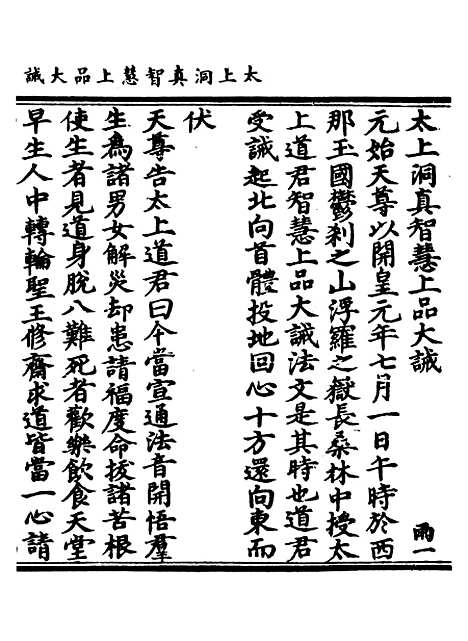 太上洞真智慧上品大誡
太上洞真智慧上品大誡
雨一
元始天尊以開皇元年七月一日午時於西
那玉國鬱刹之山浮羅之嶽長桑林中授太
上道君智慧上品大誡法文是其時也道君
受誡起北向首體投地回心十方還向東而
伏
天尊告太上道君曰今當宣通法音開悟羣
生為諸男女解災却患請福度命拔諸苦根
使生者見道身脫八難死者歡樂飲食天堂
早生人中轉輪聖王修齋求道皆當一心請